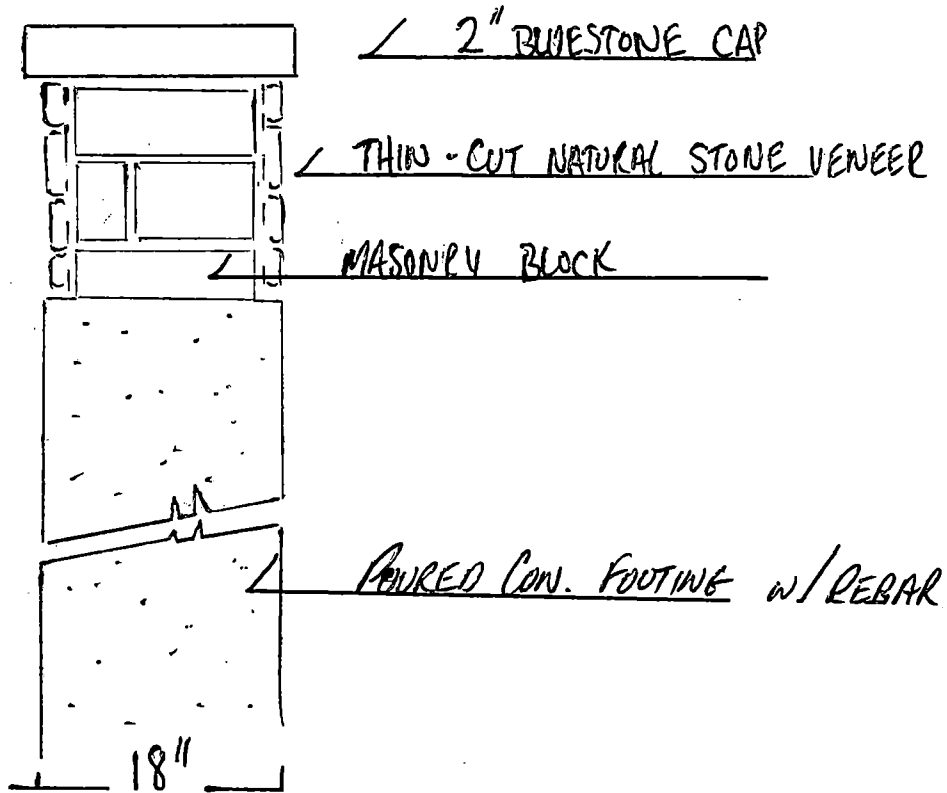 2" BLUESTONE CAP
THIN-CUT NATURAL STONE VENEER
MASONRY BLOCK
POURED CON. FOOTING w/ REBAR
18"